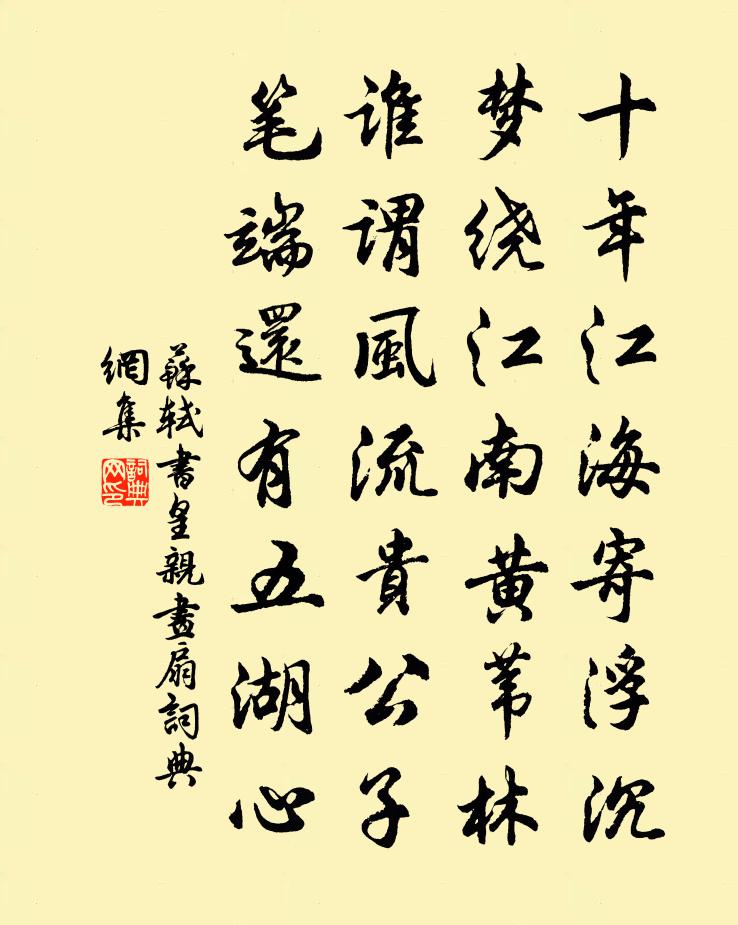 十年江海寄浮沉
梦绕江南黄苇林
谁謂風流貴公子
笔端還有五湖心
蘇轼書皇親畫扇詞典
網集
詞典
网印